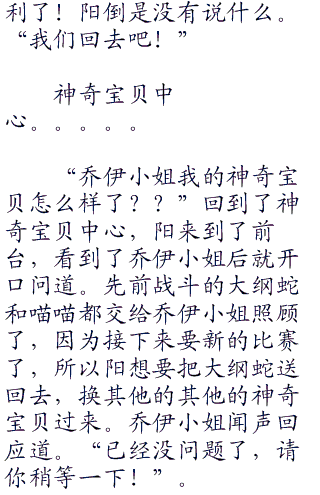 利了！阳倒是没有说什么。
“我们回去吧！”
神奇宝贝中
心。。。。。
“乔伊小姐我的神奇宝
贝怎么样了？？”回到了神
奇宝贝中心，阳来到了前
台，看到了乔伊小姐后就开
口问道。先前战斗的大纲蛇
和喵喵都交给乔伊小姐照顾
了，因为接下来要新的比赛
了，所以阳想要把大纲蛇送
回去，换其他的其他的神奇
宝贝过来。乔伊小姐闻声回
应道。“已经没问题了，请
你稍等一下！”。